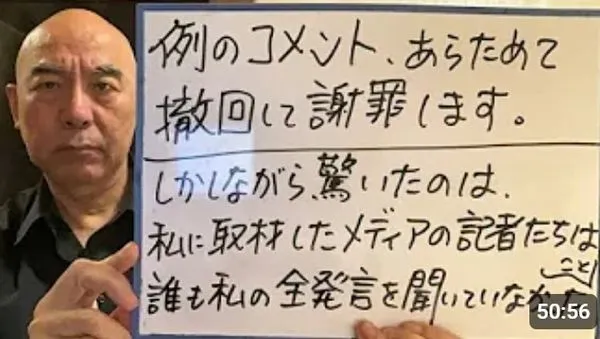 例のコメント、あらためて
撤回して謝罪します。
しかしながら驚いたのは、
私に取材したメディアの記者たちは
誰も私の全発言を聞いていなかった
こと!
50:56